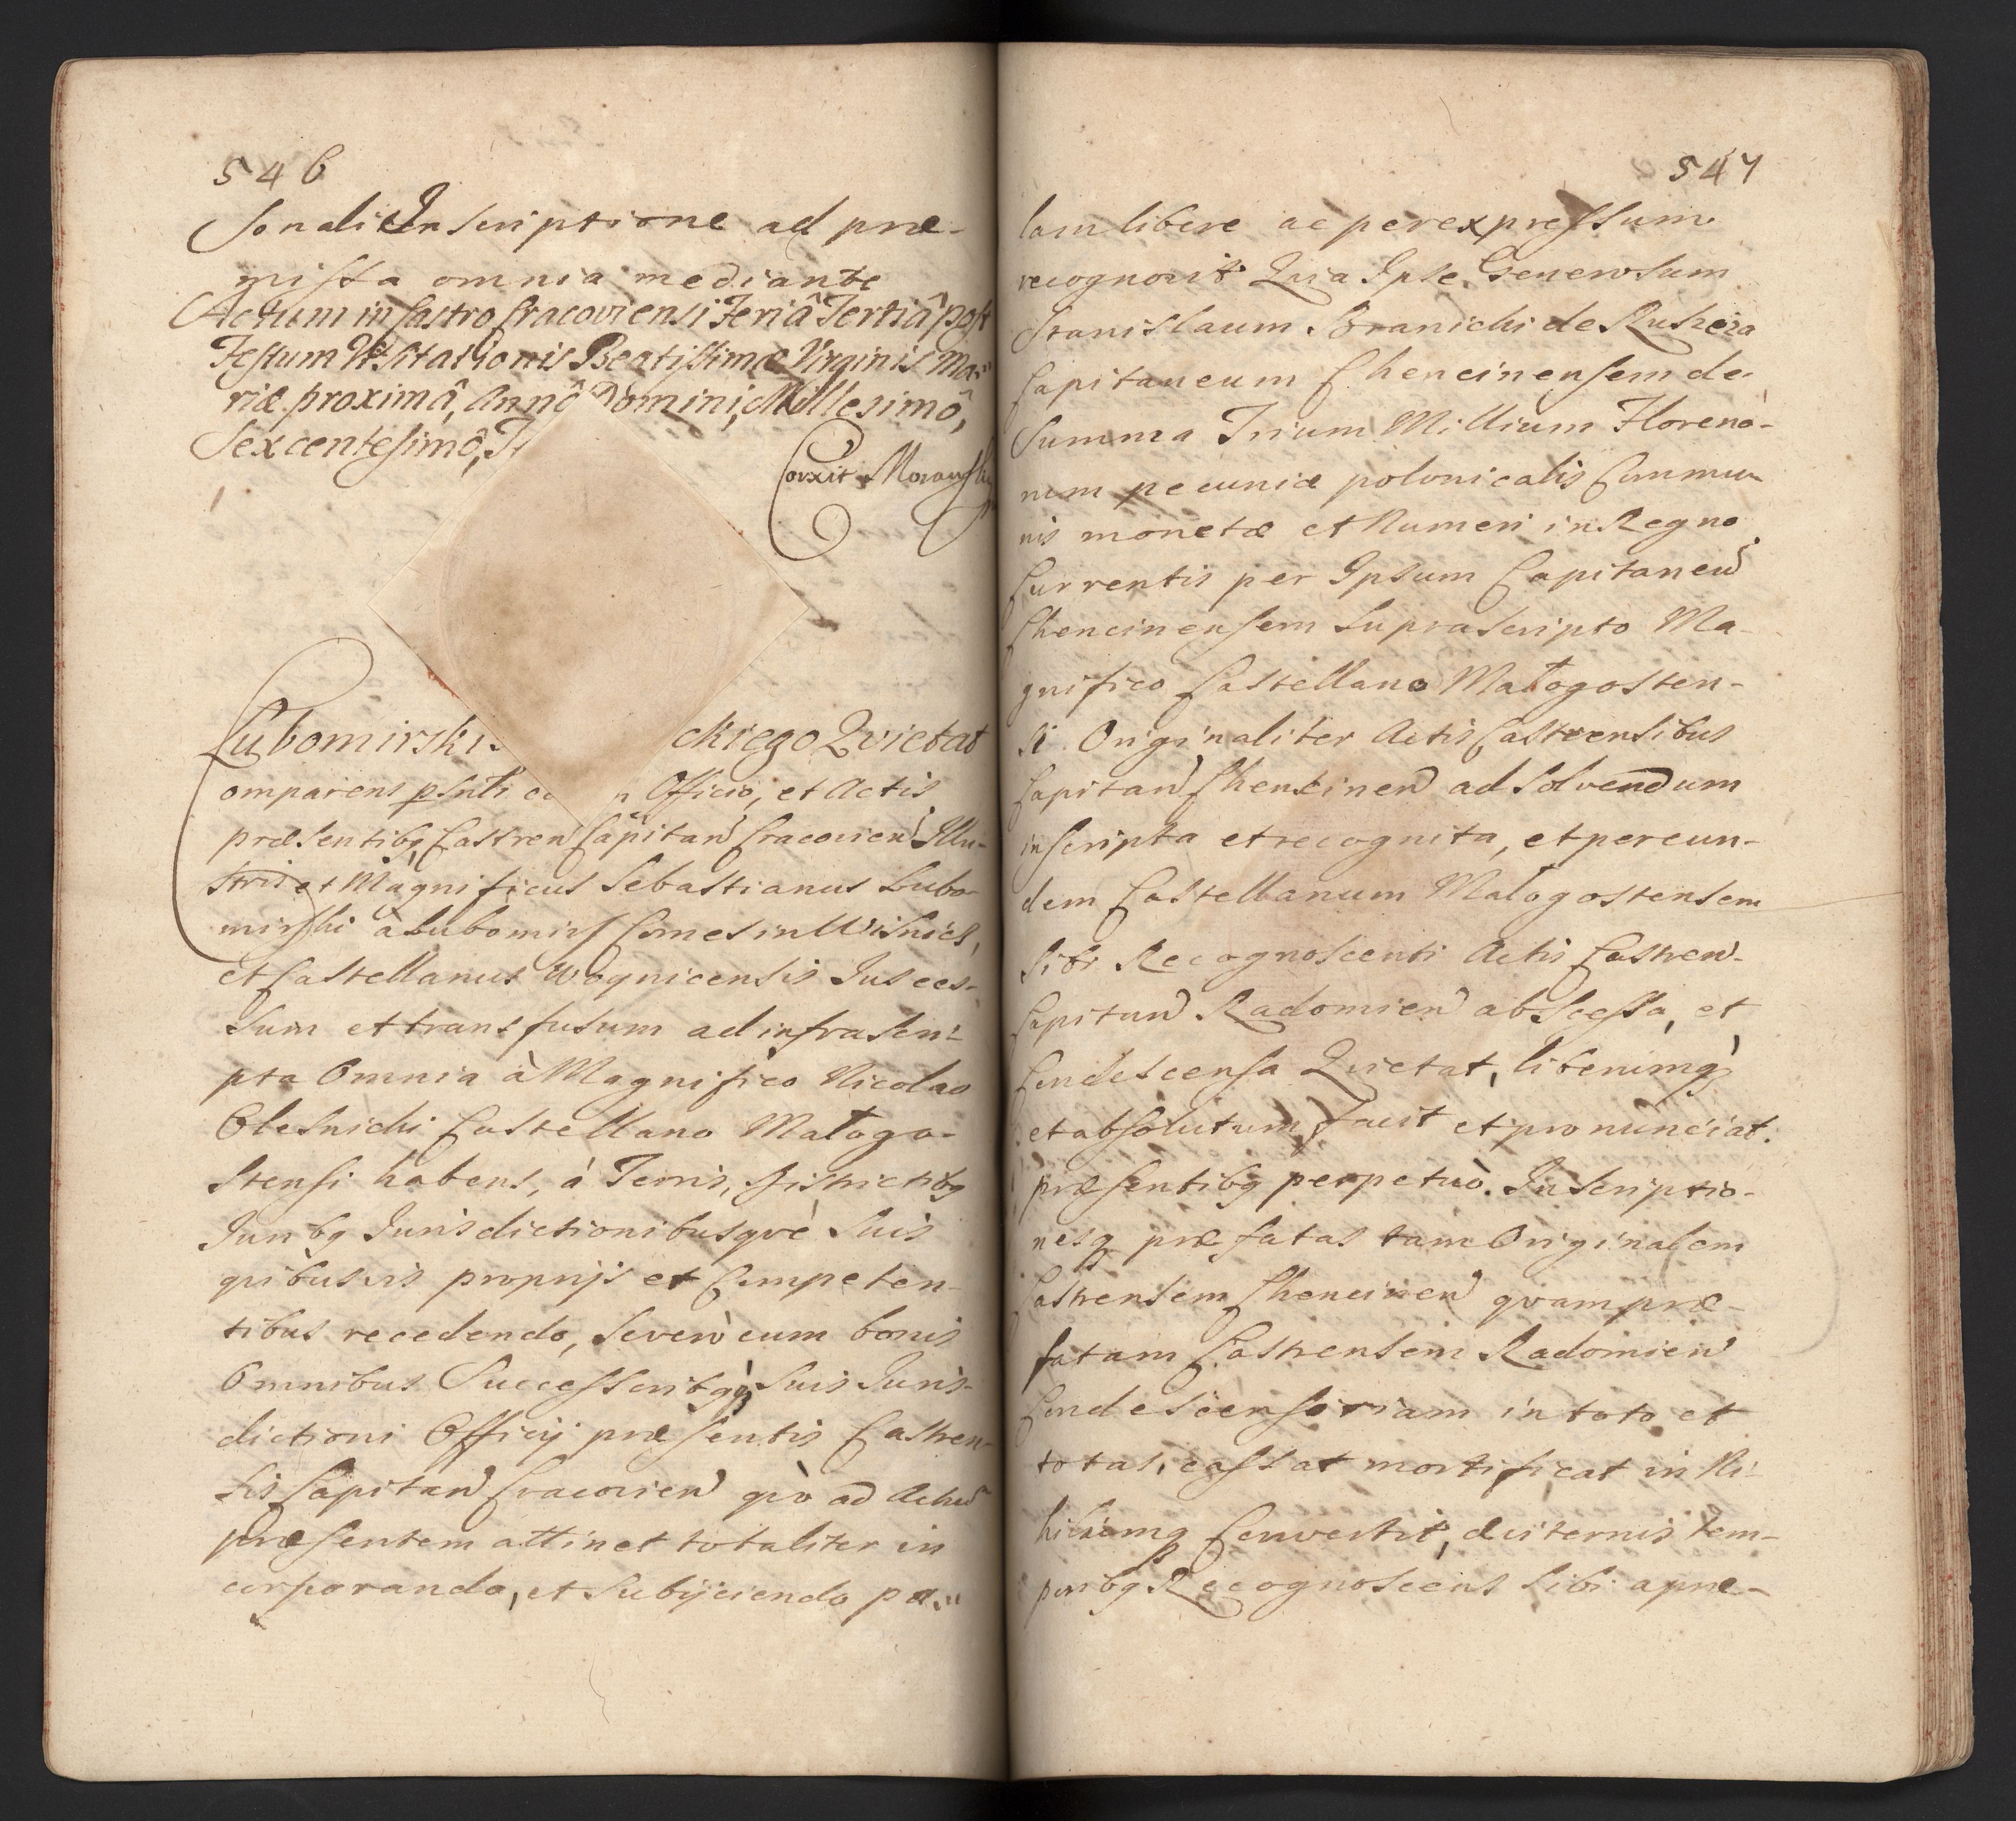 546
sonali Inscriptione ad præ-
missa omnia mediante
Actum in Castro Cracoviensi Feriâ Tertiâ post
Festum Visitationis Beatissimæ Virginis Ma-
riæ proximâ, Annô Domini, Millesimô,
Sexcentesimô,
Corxit
Lubomirski ckiego Qvietat
omparens psnti Officio, et Actis
præsentibq Castren Capitan Cracovien Illu-
stris et Magnificus Sebastianus Lubo-
mirski à Lubomirs Comes in Wisnicz,
et Castellanus Woynicensis Jus ces-
sum et transfusum ad infrascri-
pta Omnia à Magnifico Nicolao
Olesnicki Castellano Małogo-
stensi habens, à Terris, Districtibq
Juribq Jurisdictionibusqvè Suis
qvibusvis proprijs et Competen-
tibus recedendo, Severò cum bonis
Omnibus Successoribqq Suis Juris-
dictioni Officij præsentis Castren-
sis Capitan Cracovien qvò ad Actu
præsentem attinet totaliter in
corporando, et Subijciendo pa-
547
lam libere ac per expressum
recognovit Quia Ipse Generosum
Stanislaum Branicki de Ruszcza
Capitaneum Chencinensem de
Summa Trium Millium Floreno-
rum pecuniæ polonicalis Commu-
nis monetæ et Numeri in Regno
Currentis per Ipsum Capitaneu
Chencinensem Suprascripto Ma-
gnifico Castellano Małogosten-
si Originaliter Actis Castrensibus
Capitan Chencinen ad Solvendum
inscripta et recognita, et per eun-
dem Castellanum Małogostensem
Sibi Recognoscenti Actis Castren-
Capitan Radomien abscessa, et
Condescensa Qvietat, liberumq
et absolutum facit et pronunciat.
præsentibq perpetuò. Inscriptio-
nesq præfatas tam Originalem
Castrensem Chencinen qvam præ-
fatam Castrensem Radomien
Condescensoriam in toto et
totas, cassat mortificat in Ni-
hilumq Convertit, æviternis tem-
poribq Recognoscens Sibi a præ-